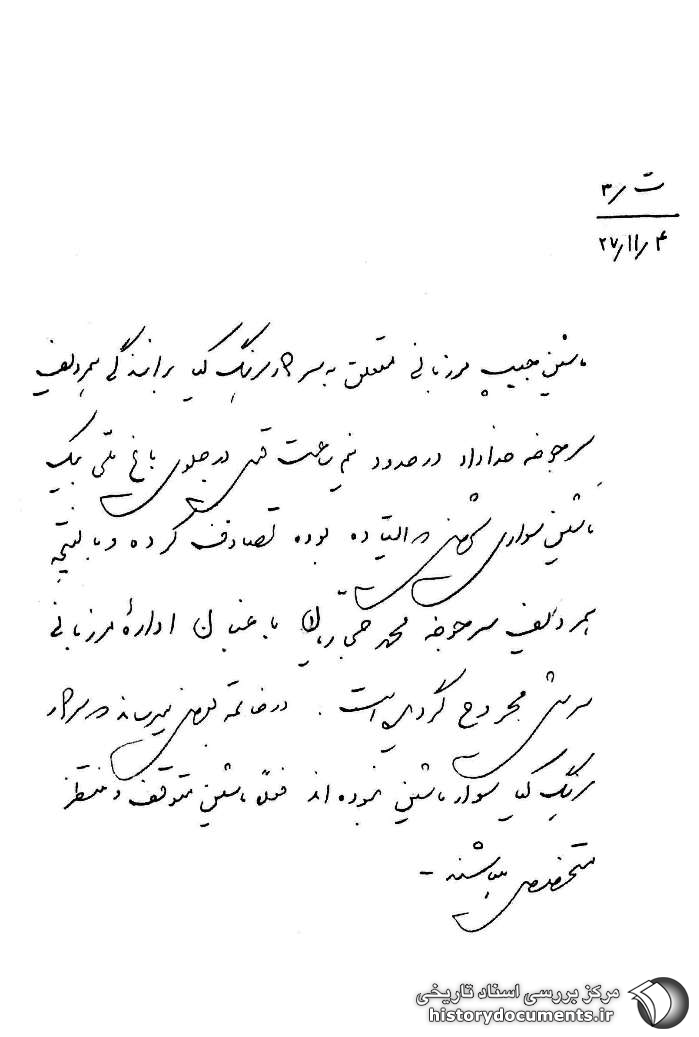 ت ر ۳
۲۷٫۱۱٫۴
ماشین جیپ مرزبانی متعلق به سرکار سرهنگ کیا برانندگی همردیف
سرجوخه خداداد در حدود نیم ساعت قبل در جلوی باغ ملی بیک
ماشین سواری شخصی که ایستاده بوده تصادف کرده و بالنتیجه
همردیف سرجوخه محمد باغبان اداره مرزبانی
سرش مجروح گردیده است . در خاتمه بعرض میرساند که سرکار
سرهنگ کیا سوار ماشین نبوده اند فعلاً ماشین متوقف و منتظر
متخصص میباشند -
مرکز بررسی اسناد تاریخی
historydocuments.ir